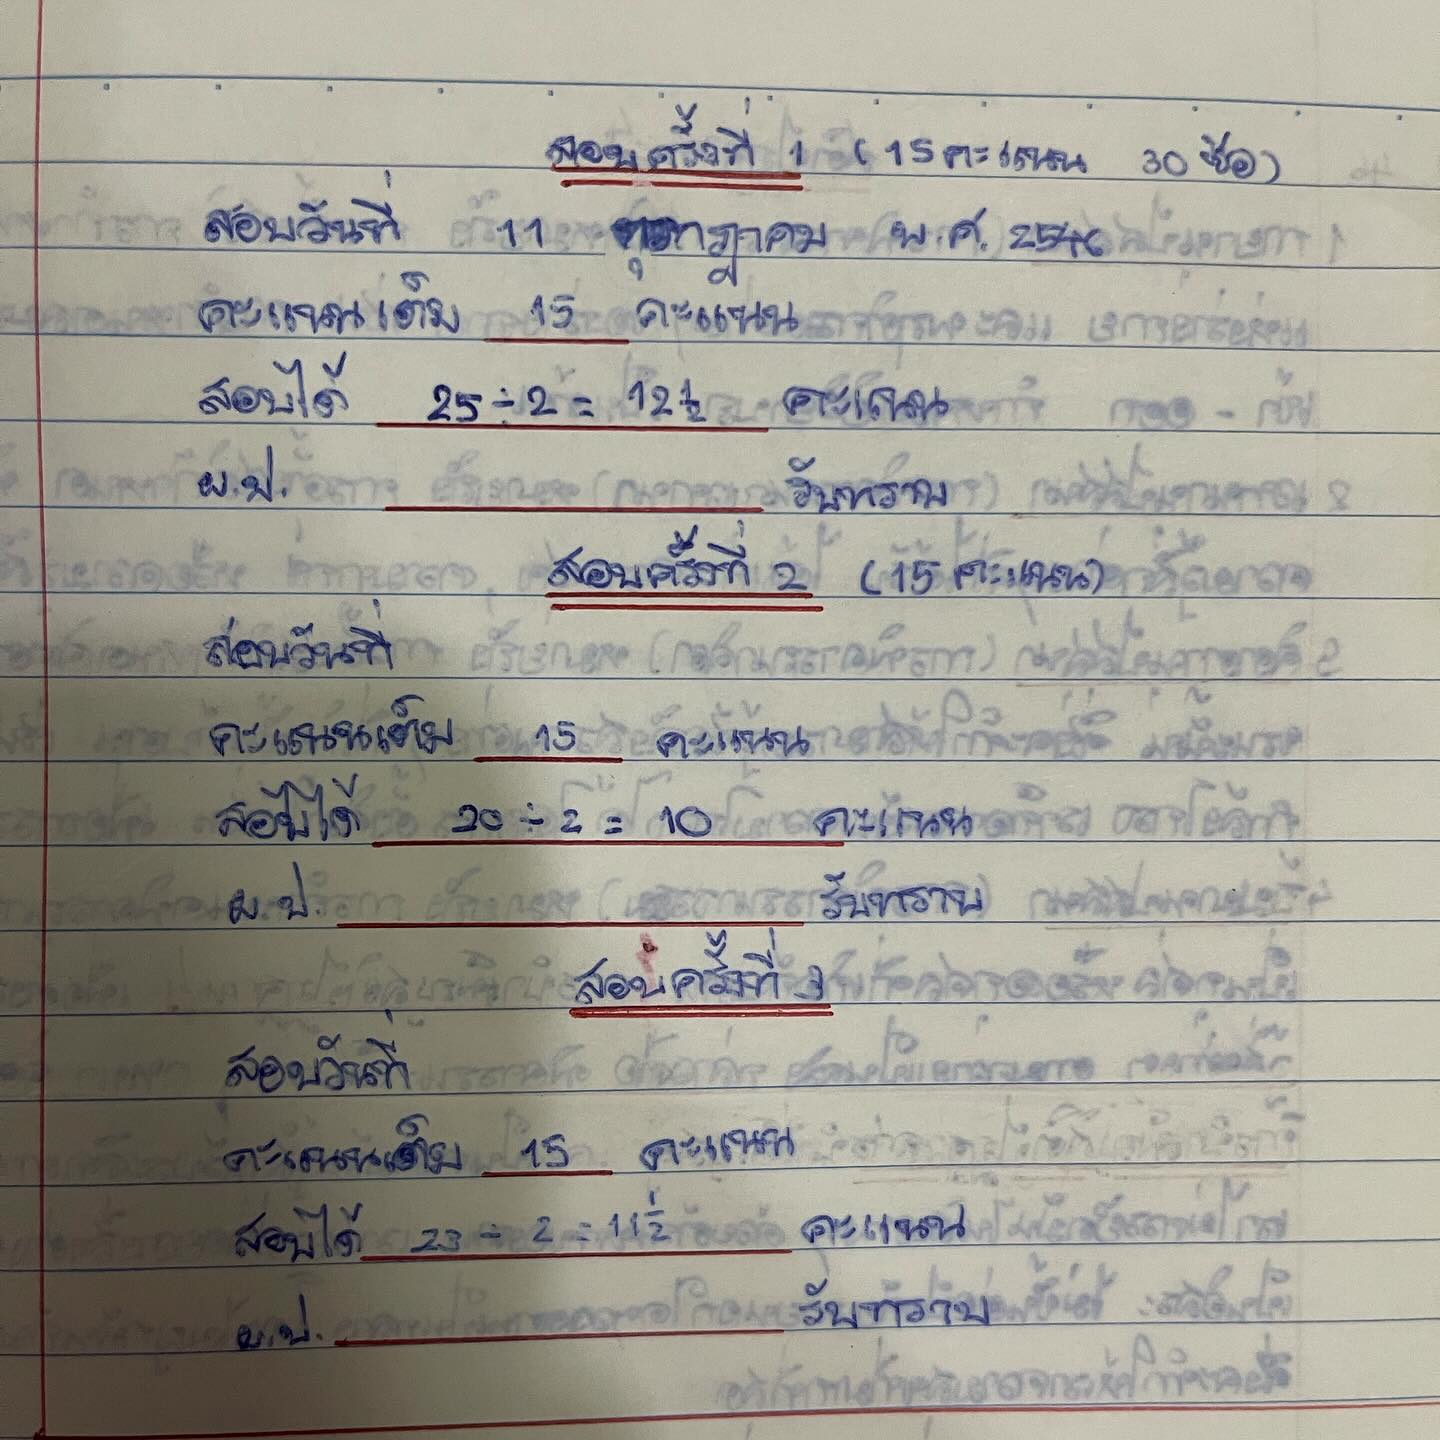 สอบครั้งที่ 1 (15 คะแนน 30 ข้อ)
สอบวันที่ 11 กรกฎาคม พ.ศ. 2546
คะแนนเต็ม 15 คะแนน
สอบได้ 25 ÷ 2 = 12 1/2 คะแนน
ผ.ป. รับทราบ
สอบครั้งที่ 2 (15 คะแนน)
สอบวันที่
คะแนนเต็ม 15 คะแนน
สอบได้ 20 ÷ 2 = 10 คะแนน
ผ.ป. รับทราบ
สอบครั้งที่ 3
สอบวันที่
คะแนนเต็ม 15 คะแนน
สอบได้ 23 ÷ 2 = 11 1/2 คะแนน
ผ.ป. รับทราบ